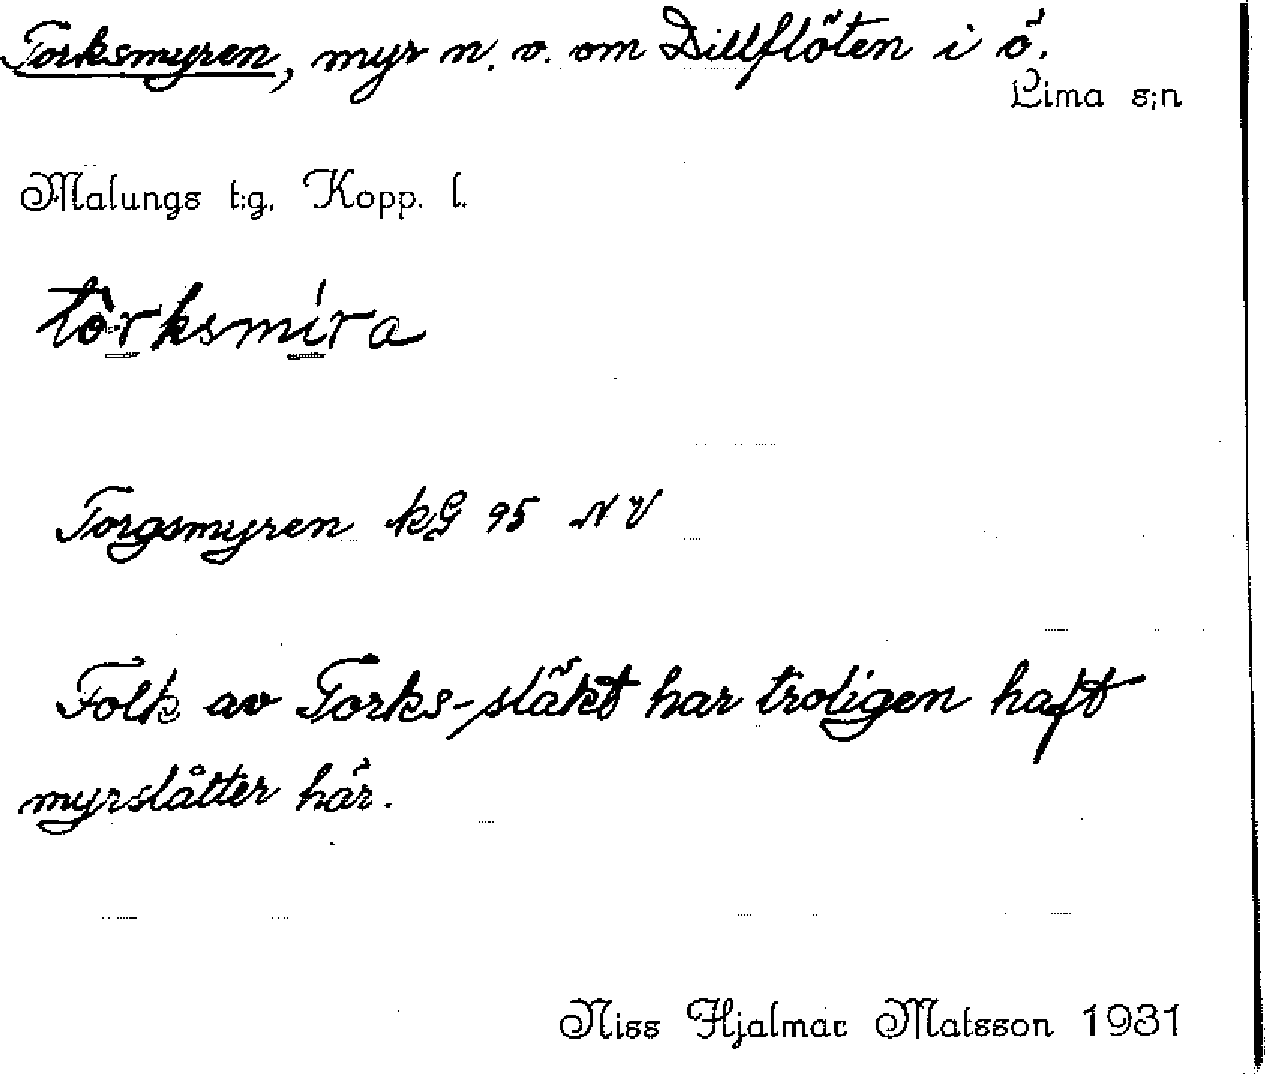 Torksmyren, myr n. v. om Dillflöten i ö.
Lima s:n
Malungs t:g, Kopp. l.
tòrksmíra
Torgsmyren kG 95 NV
Folk av Torks-släkt har troligen haft
myrslåtter här.
Niss Hjalmar Matsson 1931